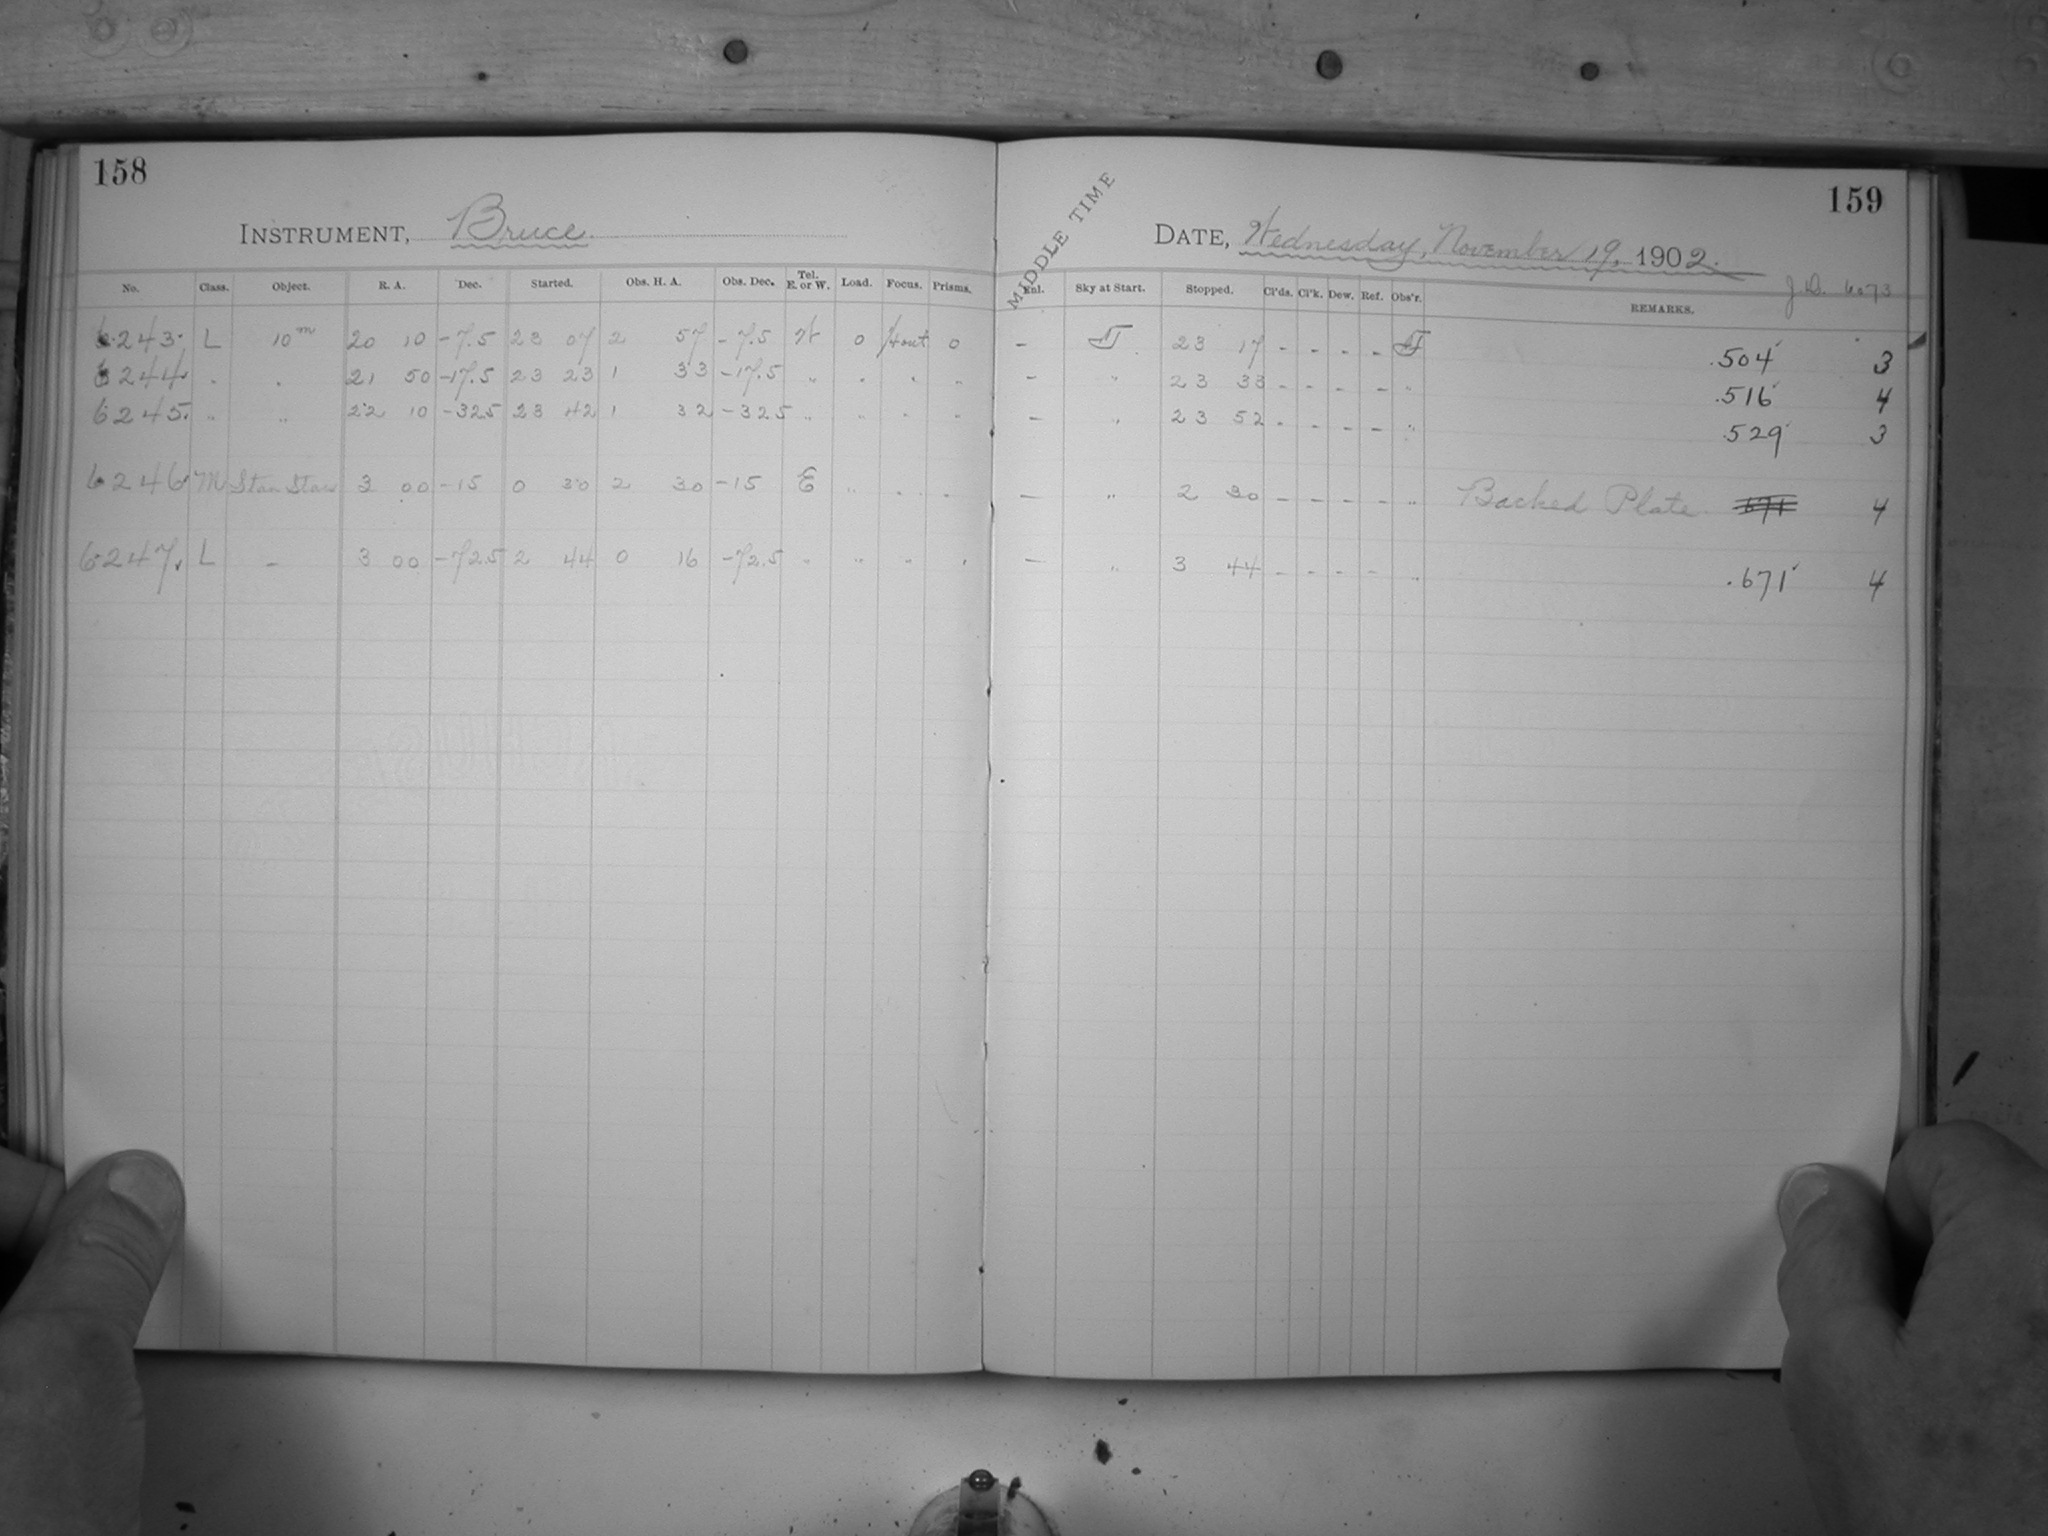 158
INSTRUMENT, Bruce.
No. Class. Object. R. A. Dec. Started. Obs. H. A. Obs. Dec. Tel. E. or W. Load. Focus. Prisms.
6243. L 10m 20 10 -7.5 23 07 2 57 -7.5 W 0 0
6244. " " 21 50 -17.5 23 23 1 33 -17.5 " " " "
6245. " " 22 10 -32.5 23 42 1 32 -32.5 " " " "
6246 M Stan Stars 3 00 -15 0 30 2 30 -15 E " " "
6247. L - 3 00 -72.5 2 44 0 16 -72.5 " " " "
159
MIDDLE TIME
DATE, Wednesday, November 19, 1902.
J.D. 6073
Enl. Sky at Start. Stopped. Cl'ds. Cl'k. Dew. Ref. Obs'r. REMARKS.
- 23 17 - - - - .504 3
- " 23 33 - - - - " .516 4
- " 23 52 - - - - " .529 3
- " 2 30 - - - - " Backed Plate. 671 4
- " 3 44 - - - - " .671 4